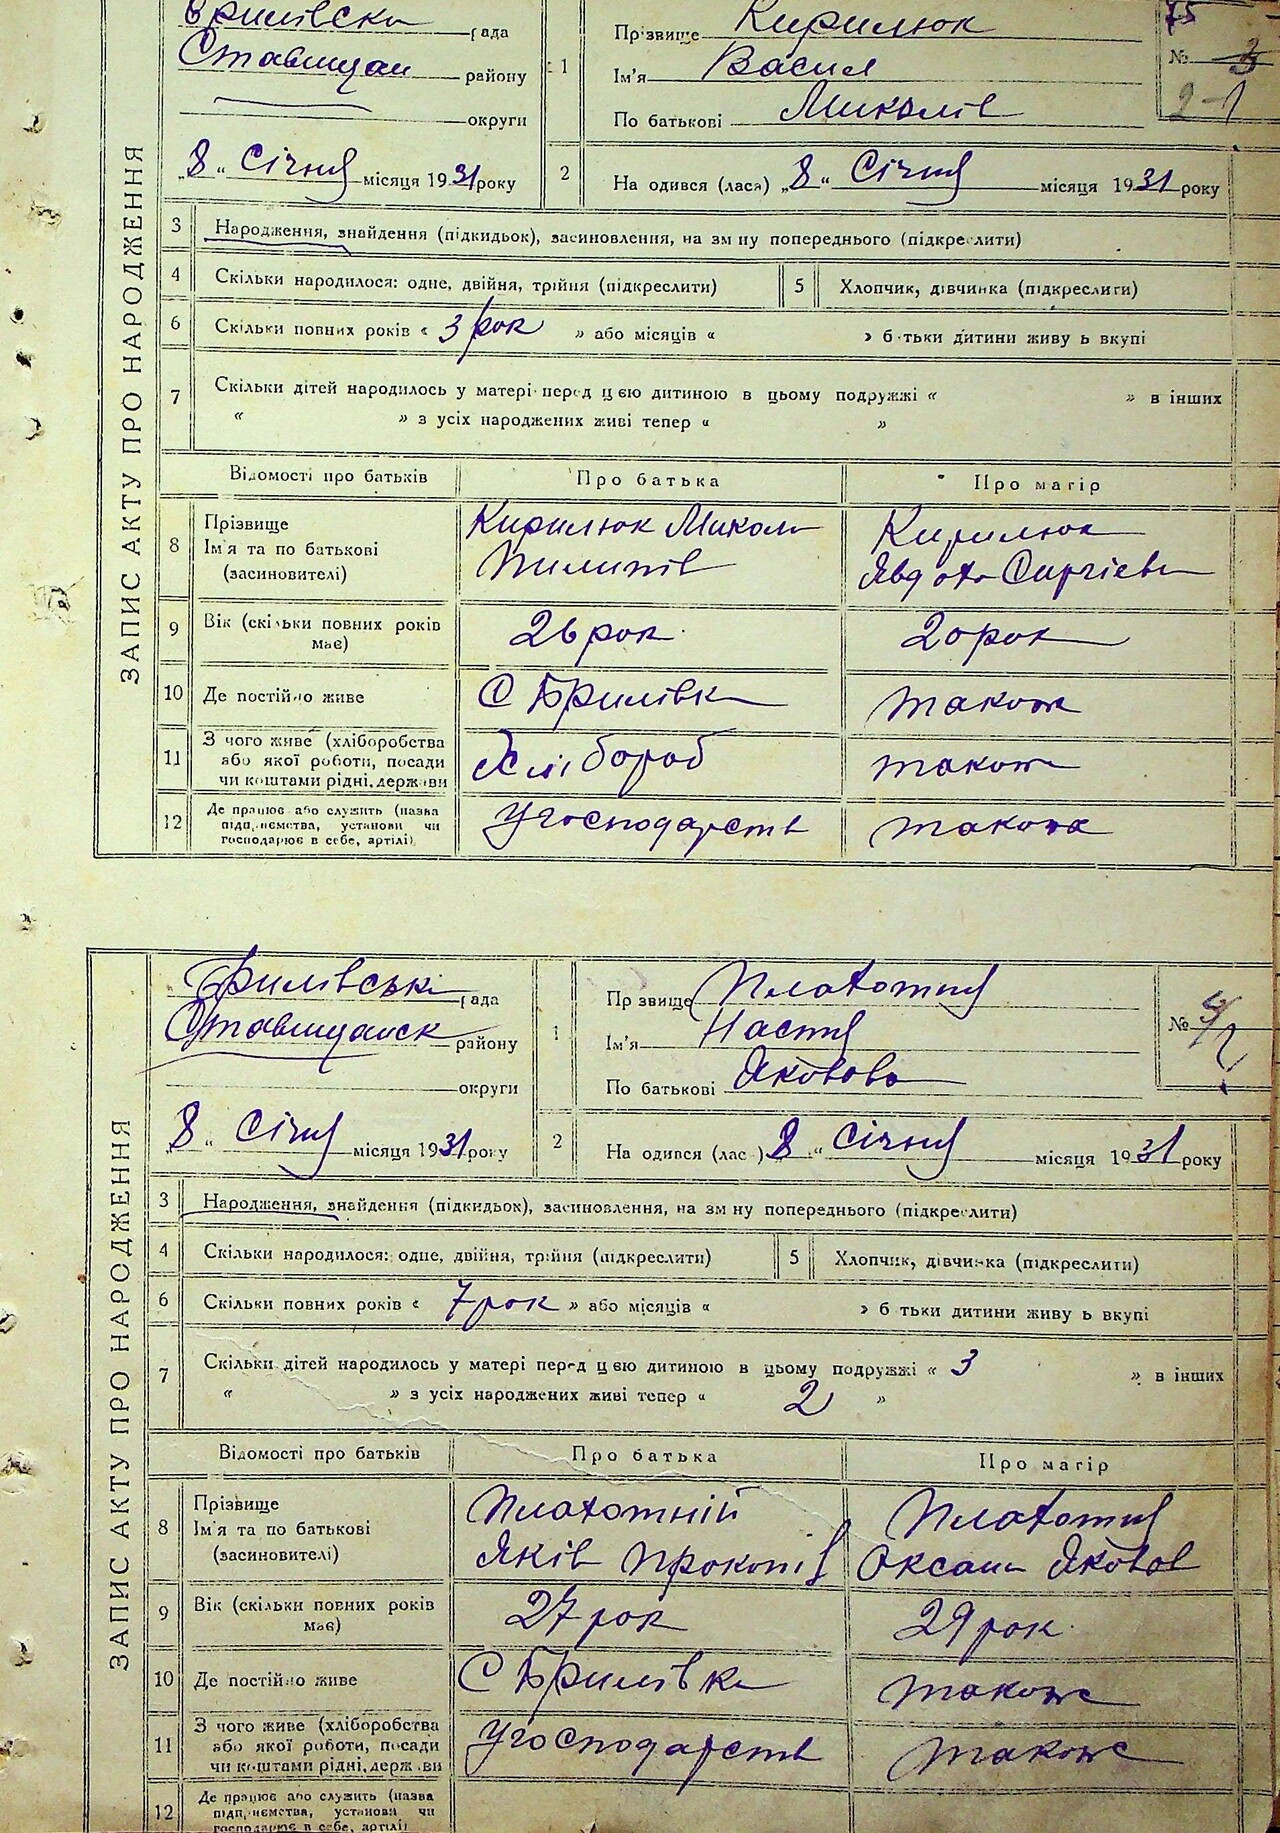 ЗАПИС АКТУ ПРО НАРОДЖЕННЯ
Брилівска рада
Ставищан району
округи
1
Прізвище Кирилюк
Ім'я Васил
По батькові Миколів
75
№ 3
2-1
„8“ Січня місяця 1931 року
2
На одився (лася) „8“ Січня місяця 1931 року
3 Народження, знайдення (підкидьок), засиновлення, на зм ну попереднього (підкреслити)
4 Скільки народилося: одне, двійня, трійня (підкреслити)
5 Хлопчик, дівчинка (підкреслити)
6 Скільки повних років « 3 рок » або місяців « » б тьки дитини живу ь вкупі
7 Скільки дітей народилось у матері перед цією дитиною в цьому подружжі « » в інших
« » з усіх народжених живі тепер « »
Відомості про батьків
Про батька
Про матір
8 Прізвище
Ім'я та по батькові
(засиновителі)
Кирилюк Микола
Пилипів
Кирилюк
Явдоха Сиргієва
9 Вік (скільки повних років
має)
26 рок
20 рок
10 Де постійно живе
С Брилівка
також
11 З чого живе (хліборобства
або якої роботи, посади
чи коштами рідні, держави
Хлібороб
також
12 Де працює або служить (назва
підприємства, установи чи
господарює в себе, артілі)
У господарств
також
ЗАПИС АКТУ ПРО НАРОДЖЕННЯ
Брилівська рада
Ставищанск району
округи
1
Пр звище Платотня
Ім'я Настя
По батькові Яковова
№ 4/2
„8“ Січня місяця 1931 року
2
На одився (лас ) „8“ Січня місяця 1931 року
3 Народження, знайдення (підкидьок), засиновлення, на зм ну попереднього (підкреслити)
4 Скільки народилося: одне, двійня, трійня (підкреслити)
5 Хлопчик, дівчинка (підкреслити)
6 Скільки повних років « 7 рок » або місяців « » б тьки дитини живу ь вкупі
7 Скільки дітей народилось у матері перед цією дитиною в цьому подружжі « 3 » в інших
« » з усіх народжених живі тепер « 2 »
Відомості про батьків
Про батька
Про матір
8 Прізвище
Ім'я та по батькові
(засиновителі)
Платотній
Яків Прокопів
Платотня
Оксана Яковов
9 Вік (скільки повних років
має)
27 рок
29 рок
10 Де постійно живе
С Брилівка
також
11 З чого живе (хліборобства
або якої роботи, посади
чи коштами рідні, держави
У господарств
також
12 Де працює або служить (назва
підприємства, установи чи
господарює в себе, артілі)